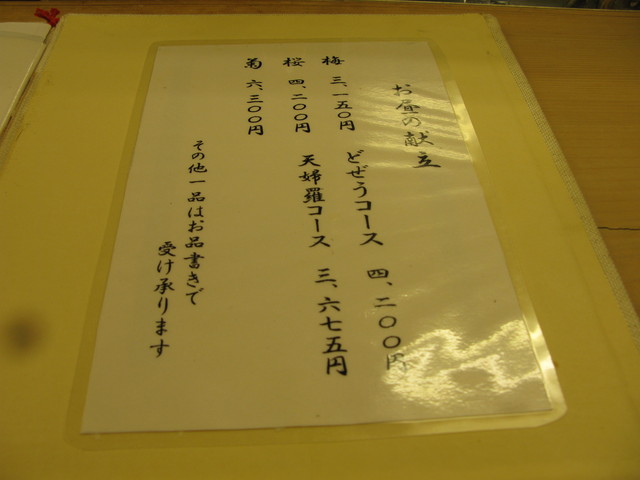 お昼の献立
梅 三、一五〇円 どぜうコース 四、二〇〇円
桜 四、二〇〇円 天婦羅コース 三、六七五円
菊 六、三〇〇円
その他一品はお品書きで
受け承ります